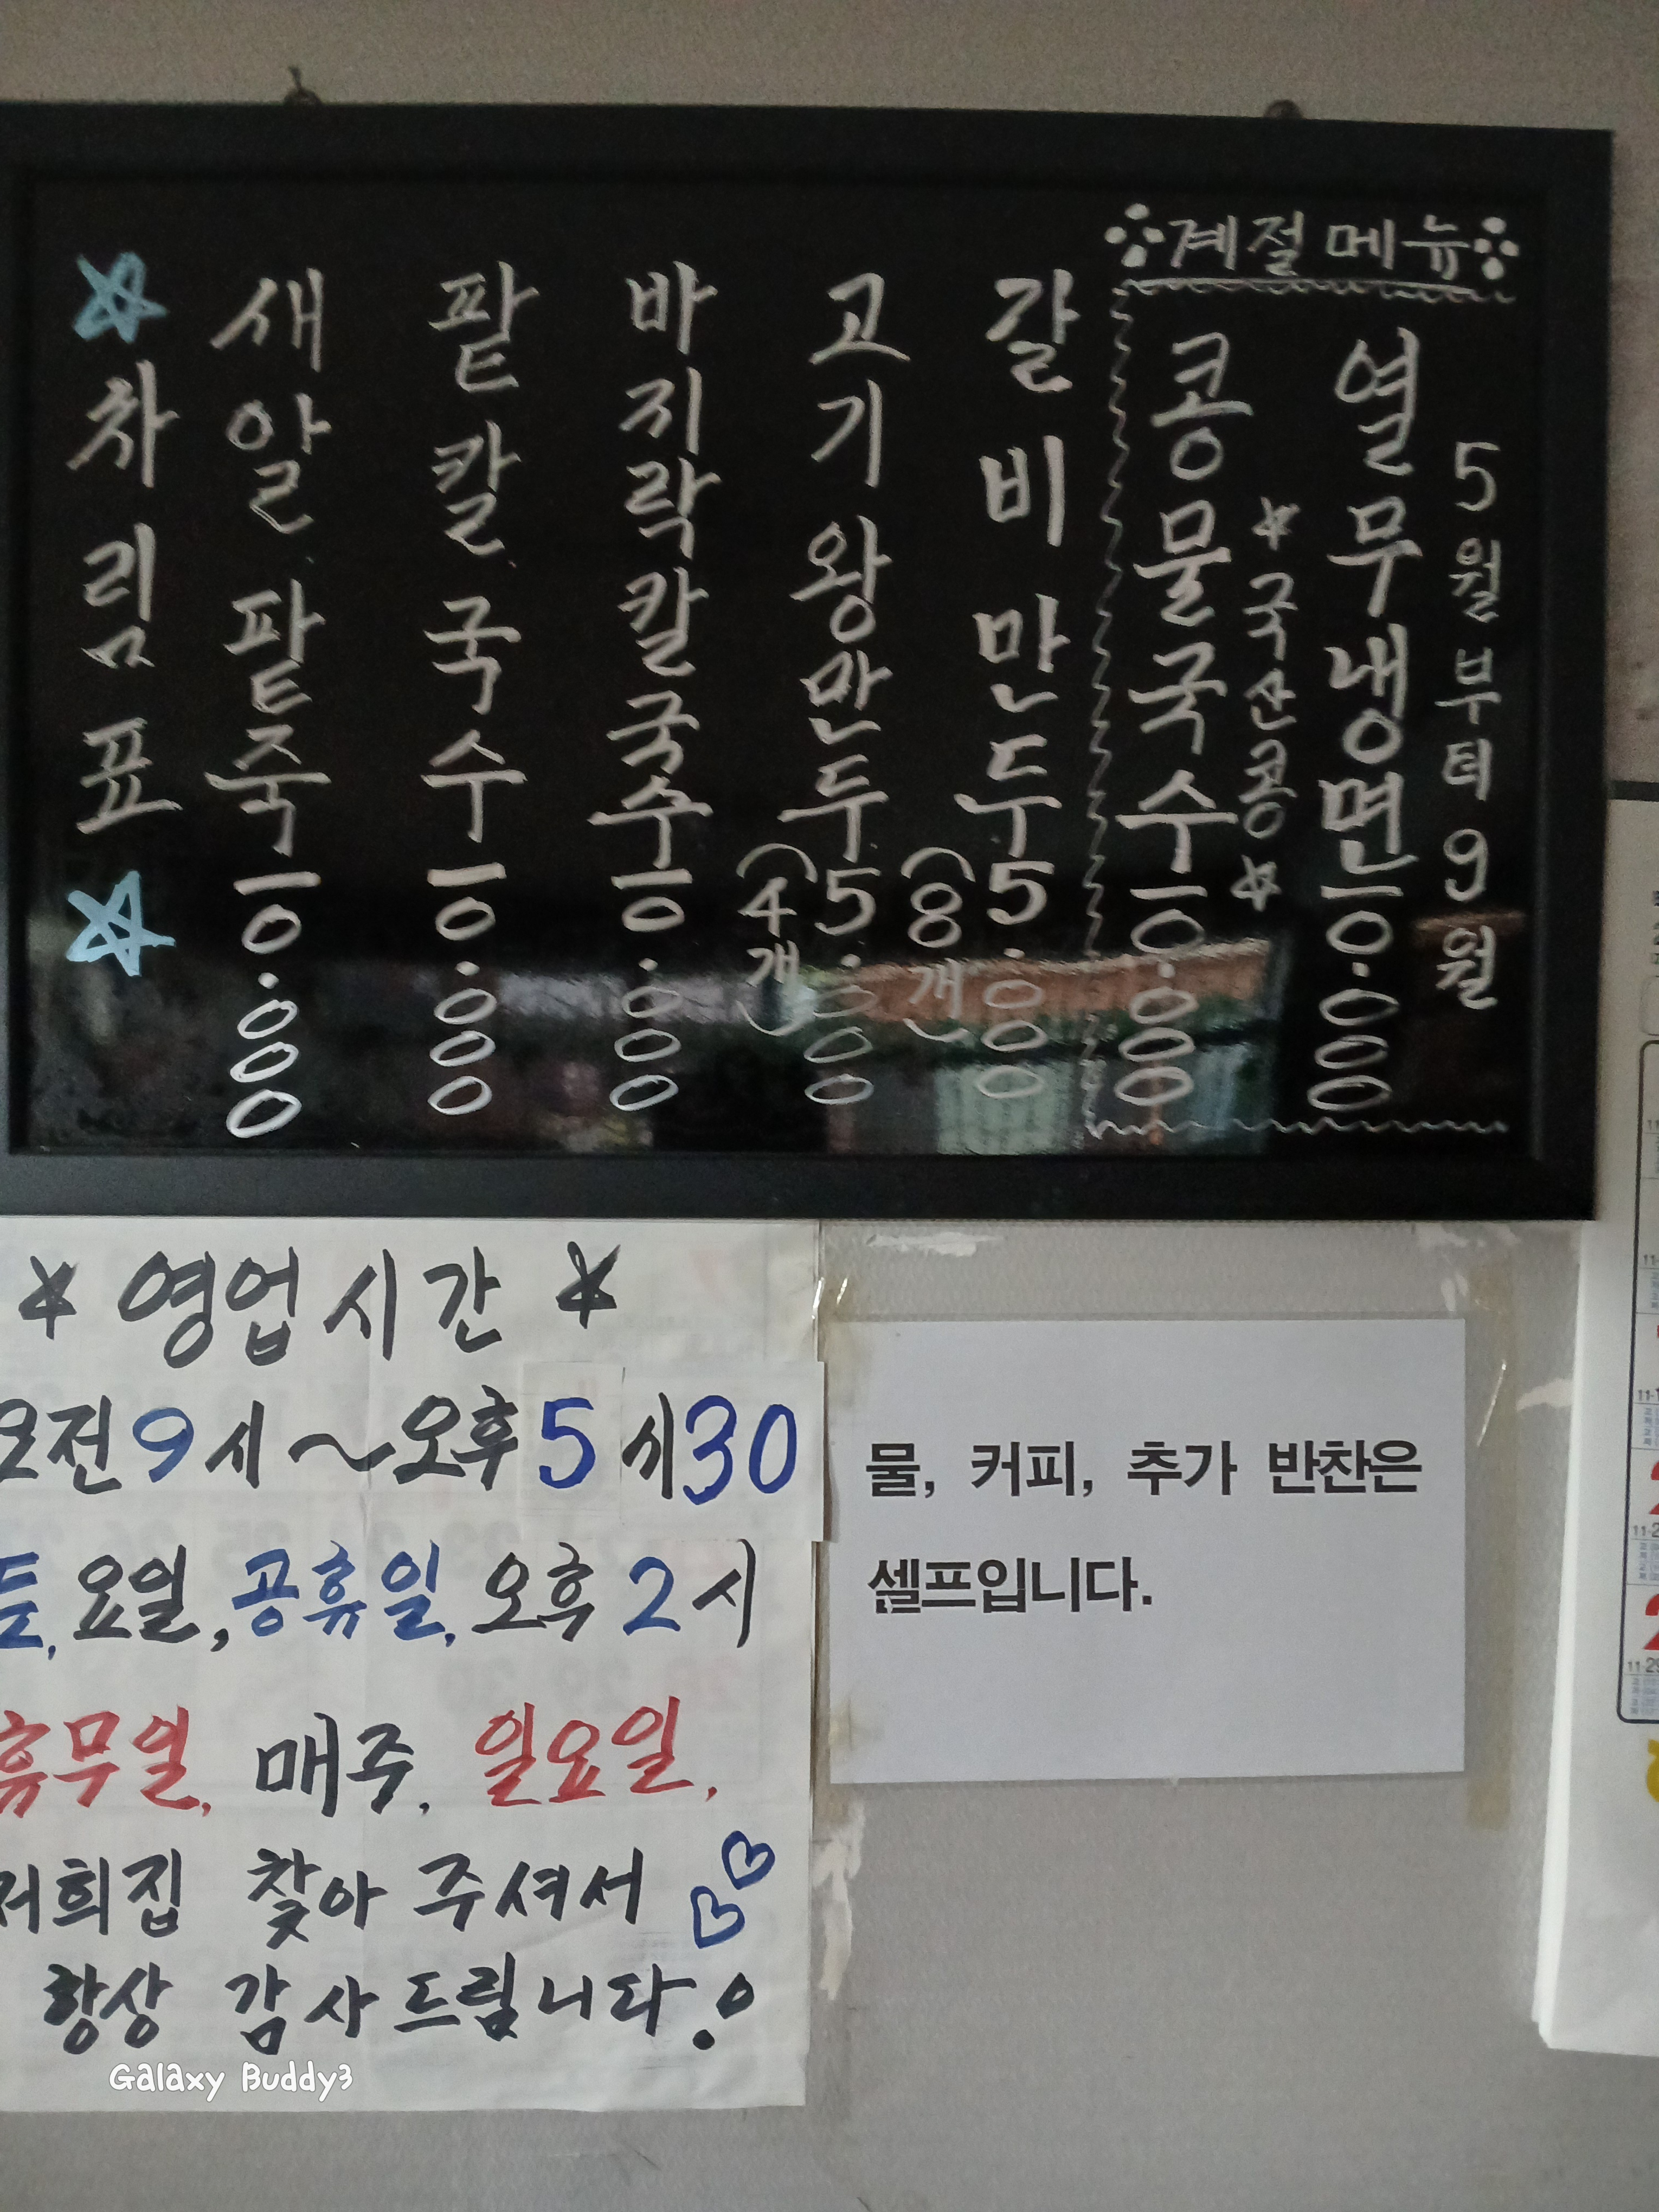 차림표
새알팥죽 10.000
팥칼국수 10.000
바지락칼국수 10.000
고기왕만두 5.000
(4개)
갈비만두 5.000
(8개)
계절메뉴
콩물국수 10.000
국산콩
열무냉면 10.000
5월부터 9월
영업시간
오전 9시 ~ 오후 5시30
요일, 공휴일, 오후 2시
휴무일, 매주, 일요일,
저희집 찾아 주셔서
항상 감사드립니다!
물, 커피, 추가 반찬은
셀프입니다.
Galaxy Buddy3